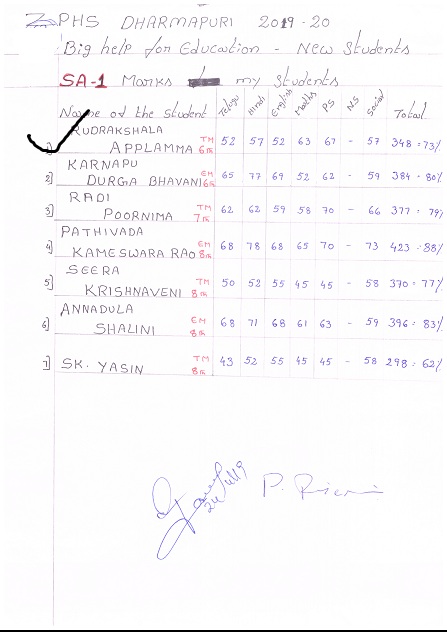 ZPHS DHARMAPURI 2019-20
Big help for Education - New Students
SA-1 Marks my Students
Name of the Student Telugu Hindi English Maths PS NS Social Total
1) RUDRAKSHALA
APPLAMMA TM 6th 52 57 52 63 67 - 57 348 = 73%
2) KARNAPU
DURGA BHAVANI EM 6th 65 77 69 52 62 - 59 384 = 80%
3) RADI
POORNIMA TM 7th 62 62 59 58 70 - 66 377 = 79%
4) PATHIVADA
KAMESWARA RAO EM 8th 68 78 68 65 70 - 73 423 = 88%
5) SEERA
KRISHNAVENI TM 8th 50 52 55 45 45 - 58 370 = 77%
6) ANNADULA
SHALINI EM 8th 68 71 68 61 63 - 59 396 = 83%
7) SK. YASIN TM 8th 43 52 55 45 45 - 58 298 = 62%
P.